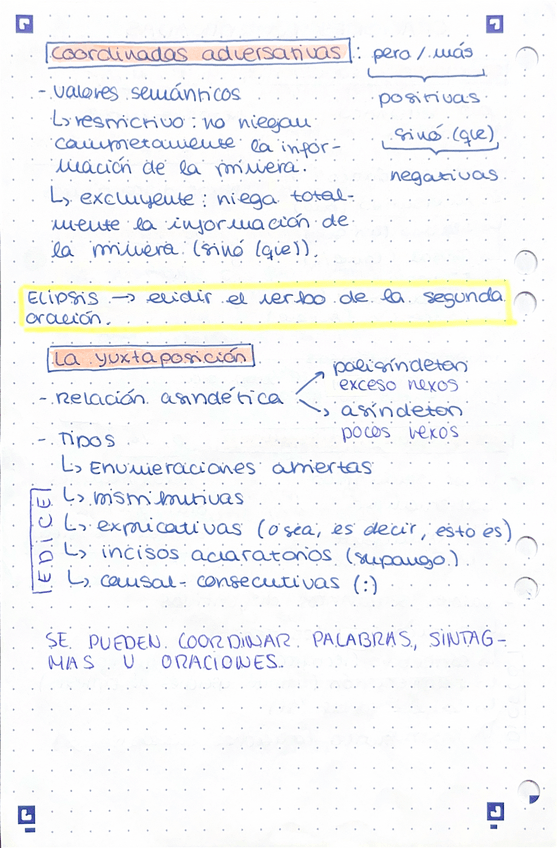 coordinadas adversativas: pero / más
positivas
sinó (qie)
negativas
- valores semánticos
↳ restrictivo: no niegan
completamente la infor-
mación de la primera.
↳ excluyente: niega total-
mente la información de
la primera (sinó (qie)).
Elipsis → elidir el verbo de la segunda
oración.
La yuxtaposición
- Relación asindética
polisíndeton
exceso nexos
asíndeton
pocos nexos
- Tipos
↳ Enumeraciones abiertas
↳ Distributivas
↳ explicativas (o sea, es decir, esto es)
↳ incisos aclaratorios (supongo)
↳ causal-consecutivas (:)
EDICE
SE PUEDEN COORDINAR PALABRAS, SINTAG-
MAS U ORACIONES.